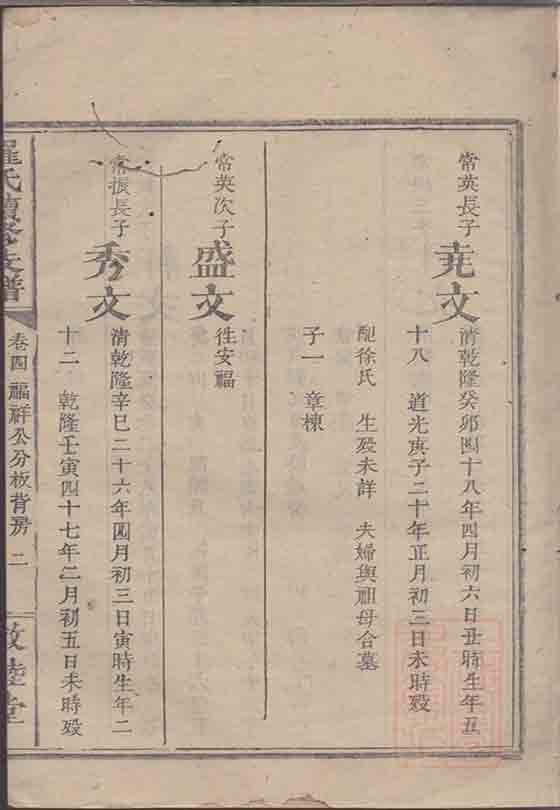 常英長子
尭文
清乾隆癸卯四十八年四月初六日丑時生年五
十八 道光庚子二十年正月初三日未時殁
配徐氏 生殁未詳 夫婦與祖母合墓
子一 章棟
常英次子
盛文
徃安福
常振長子
秀文
清乾隆辛巳二十六年四月初三日寅時生年二
十二 乾隆壬寅四十七年二月初五日未時殁
羅氏續修支譜
卷四 福祥公分板背房 二
敦睦堂